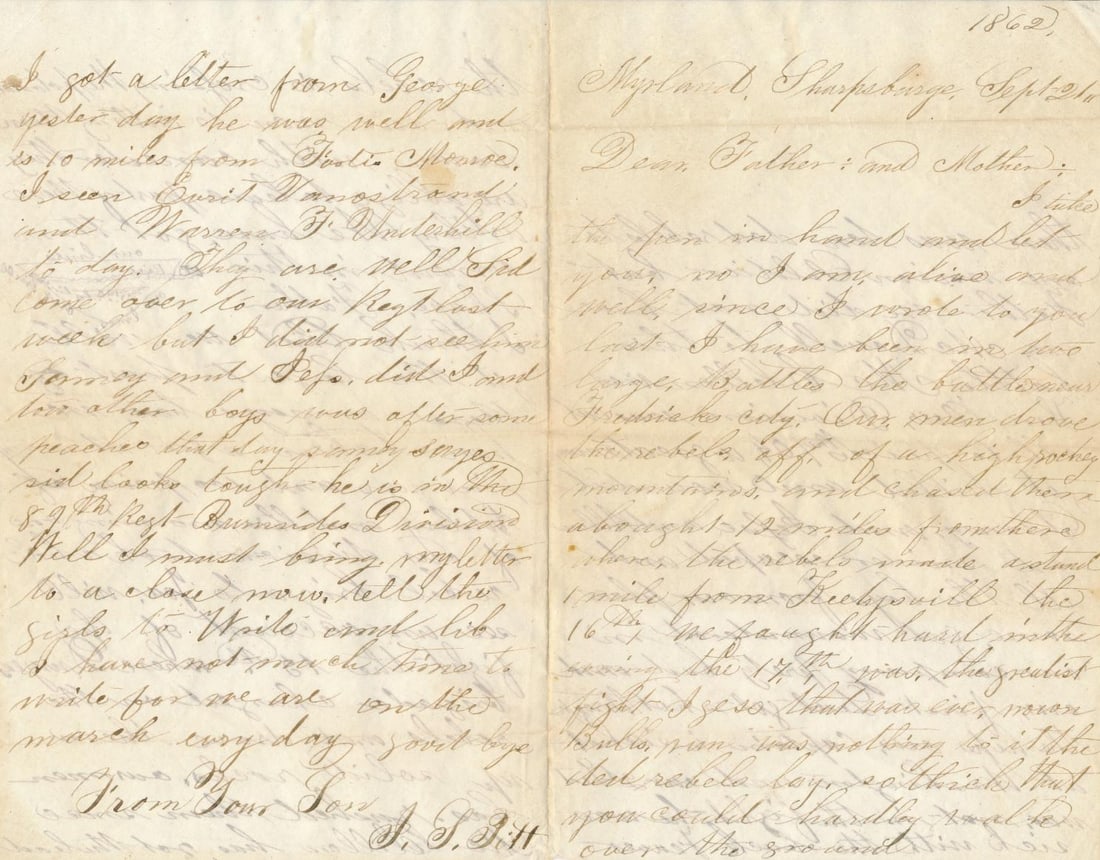 1862.
Myrland, Sharpsburge, Sept 21st
Dear, Father: and Mother:
I take
the pen in hand and let
you, no I am, alive and
well, since I wrote to you
last I have been in two
large, Battles the battle near
Fredricks city, Our, men drove
the rebels, off, of a high rockey
mountains, and chased them
abought 12 miles from there
where, the rebels made a stand
1 mile from Keetysvill the
16th, we faught hard in the
evning the 17,th was, the greatist
fight I gess that was ever nown
Bulls, run was nothing to it the
ded rebels lay, so thick that
you could hardley walk
over the ground
I got a letter from George
yester day he was well and
is 10 miles from Fortis Monroe,
I seen Evrit Vanostrand
and Warren F. Underhill
to day. They are well Sid
come over to our Regt last
week but I did not see him
and Jefs. did I and
tow other boys was after some
peaches that day sayes
sid looks tough he is in the
89th Regt Burnsides Division
Well I must bring my letter
to a close now, tell the
girls to Write and lib
I have not much time to
write for we are on the
march evry day good bye
From Your Son
J. S. Pitt